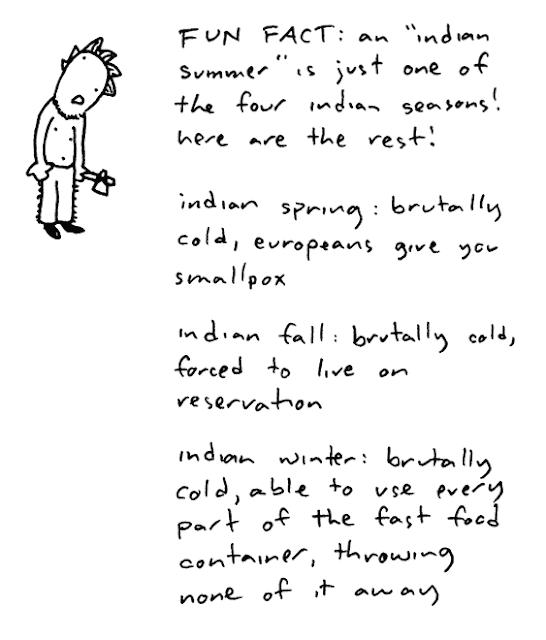 FUN FACT: an "indian
summer" is just one of
the four indian seasons!
here are the rest!
indian spring: brutally
cold, europeans give you
smallpox
indian fall: brutally cold,
forced to live on
reservation
indian winter: brutally
cold, able to use every
part of the fast food
container, throwing
none of it away